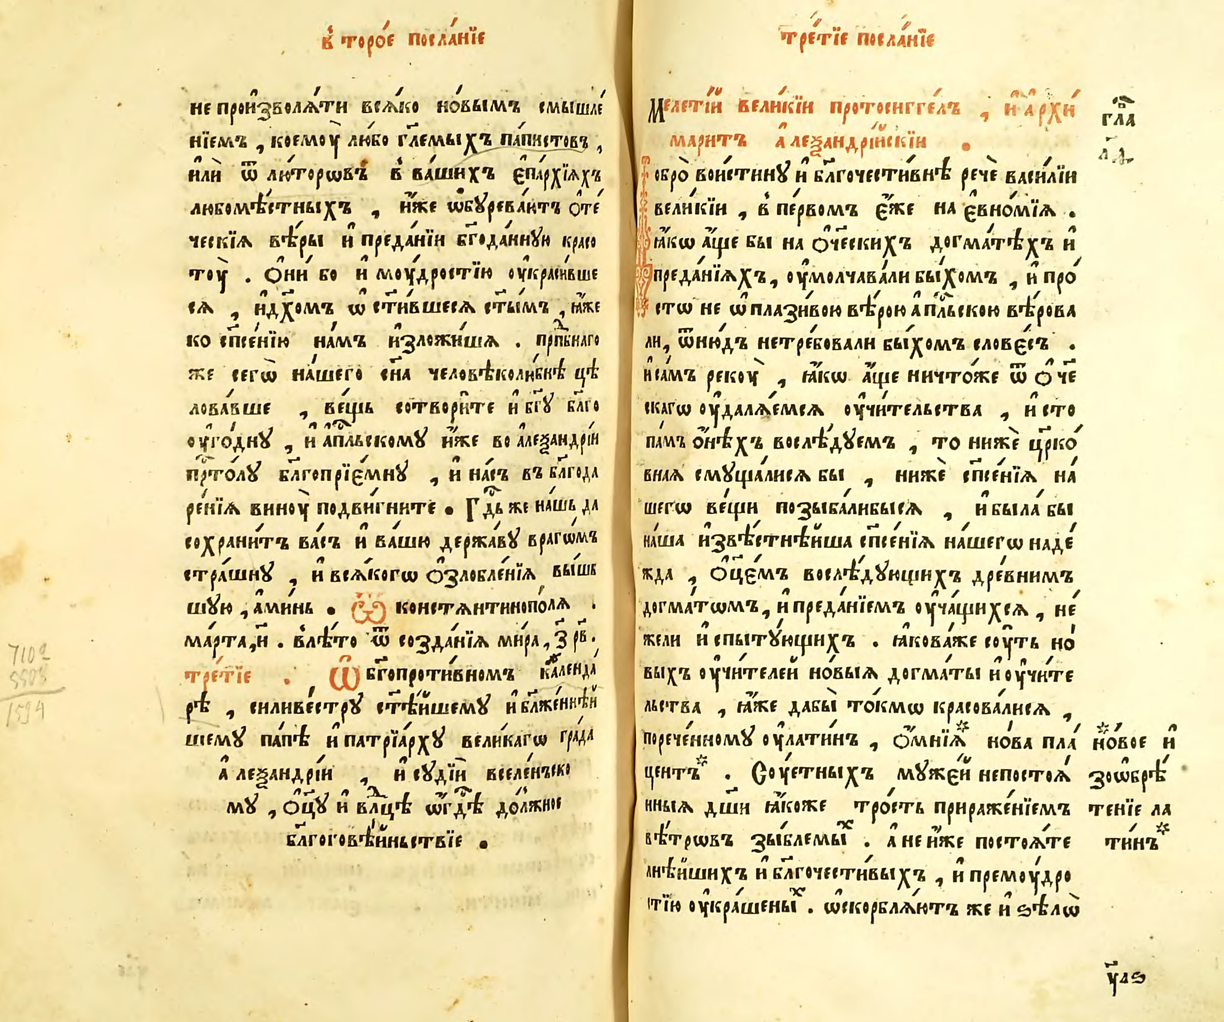 в҆торо́е посла́нїе
не произволѧ́ти всѧ́ко но́вымъ смышле́
нїемъ, коемоу̀ любо гл҃емыхъ па́пистовъ,
и҆лѝ ѿ лю́торѡвъ в҆ ва́шихъ є҆па́рхїѧхъ
любомѣ́стныхъ, и҆́же ѡ҆буре́ваютъ ѻ҆те́
ческїѧ вѣ́ры и҆ преда́нїи бг҃ода́нную красо
тоу̀. Ѻ҆ни́ бо и҆ моу́дростїю оу҆кра́сивше
сѧ, и҆ дх҃омъ ѡ҆ст҃и́вшеесѧ ст҃ы́мъ, ꙗ҆́же
ко сп҃се́нїю на́мъ и҆зложи́шѧ. прпⷣбнаго
же сегѡ̀ на́шего сн҃а человѣколю́бнѣ цѣ
лова́вше, ве́щь сотвори́те и҆ бг҃у бл҃го
оу҆го́дну, и҆ а҆пⷭ҇льскому и҆́же во а҆леѯандрі́и
прⷭ҇то́лу бл҃гопрїе́мну, и҆ на́съ въ бл҃года
ре́нїѧ виноу̀ подви́гните. Гдⷭ҇ь же на́шь да
сохрани́тъ ва́съ и҆ ва́шю держа́ву врагѡ́мъ
стра́шну, и҆ всѧ́когѡ ѻ҆злобле́нїѧ вы́шь
шую, а҆ми́нь. Ѿ константинопо́лѧ.
ма́рта, и҃. в҆лѣ́то ѿ созда́нїѧ ми́ра, ҂з҃рв҃.
тре́тїе. Ѡ҆ бг҃опроти́вномъ календа
рѣ̀, силиве́стру ст҃ѣ́йшему и҆ бл҃же́ннѣй
шему па́пѣ и҆ патрїа́рху вели́кагѡ гра́да
а҆леѯандрі́и, и҆ судїѝ вселе́ньско
му, ѻ҆ц҃у̀ и҆ влⷣцѣ ѡ҆ гдⷭ҇ѣ до́лжное
бл҃гоговѣ́йньствїе.
7102
5508
1594
тре́тїе посла́нїе
Меле́тїй вели́кїи протосиггелъ, и҆ а҆рхи
маритъ а҆леѯандрі́йскїи.
гл҃а
Добро̀ вои́стину и҆ бл҃гочести́внѣ речѐ васи́лїи
вели́кїи, в҆ пе́рвомъ є҆́же на є҆вно́мїѧ.
ꙗ҆́кѡ а҆́ще бы на ѻ҆те́ческихъ догма́тѣхъ и҆
преда́нїѧхъ, оу҆молчава́ли бы́хомъ, и҆ про́
стѡ не ѡ҆плази́вою вѣ́рою а҆пⷭ҇льскою вѣ́рова
ли, ѿню́дъ нетре́бовали бы́хомъ слове́съ.
и҆ са́мъ рекоу̀, ꙗ҆́кѡ а҆́ще ничто́же ѿ ѻ҆че́
скагѡ оу҆далѧ́емсѧ оу҆чи́тельства, и҆ сто
па́мъ ѻ҆нѣ́хъ вослѣ́дуемъ, то нижѐ цр҃ко́
внаѧ смуща́лисѧ бы, нижѐ сп҃се́нїѧ на́
шегѡ ве́щи позыба́либысѧ, и҆ была̀ бы
на́ша и҆звѣ́стнѣйша сп҃се́нїѧ на́шегѡ наде́
жда, ѻ҆ц҃е́мъ вослѣ́дующихъ дре́внимъ
догма́тѡмъ, и҆ преда́нїемъ оу҆ча́щихсѧ, не́
жели и҆спыту́ющихъ. ꙗ҆кова́же соу́ть но́
выхъ оу҆чи́телей но́выѧ догма́ты и҆ оу҆чи́те
льства, ꙗ҆́же дабы̀ то́кмѡ красова́лисѧ,
порече́нному оу҆ лати́нъ, Ѻ҆мнїѧ* нова пла́
центъ*. Соуе́тныхъ муже́й непостоѧ
нныѧ дш҃и ꙗ҆́коже тро́сть прираже́нїемъ
вѣ́трѡвъ зы́блемыⷯ. а҆ не и҆́же постоѧ́те
льнѣ́йшихъ и҆ бл҃гочести́выхъ, и҆ премоу́дро
стїю оу҆кра́шеныⷯ. ѡ҆скорблѧ́ютъ же и҆ ѕѣлѡ̀
*но́вое и҆
зѡ҆брѣ́
тенїе ла
ти́нъ*